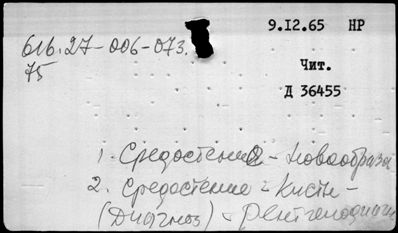 9.I2.65 НР
616.27-006-073.
75
Чит.
Д 36455
1. Средостение - Новообраза
2. Средостение - Кисты -
(Диагноз) - Рентгенодиагн